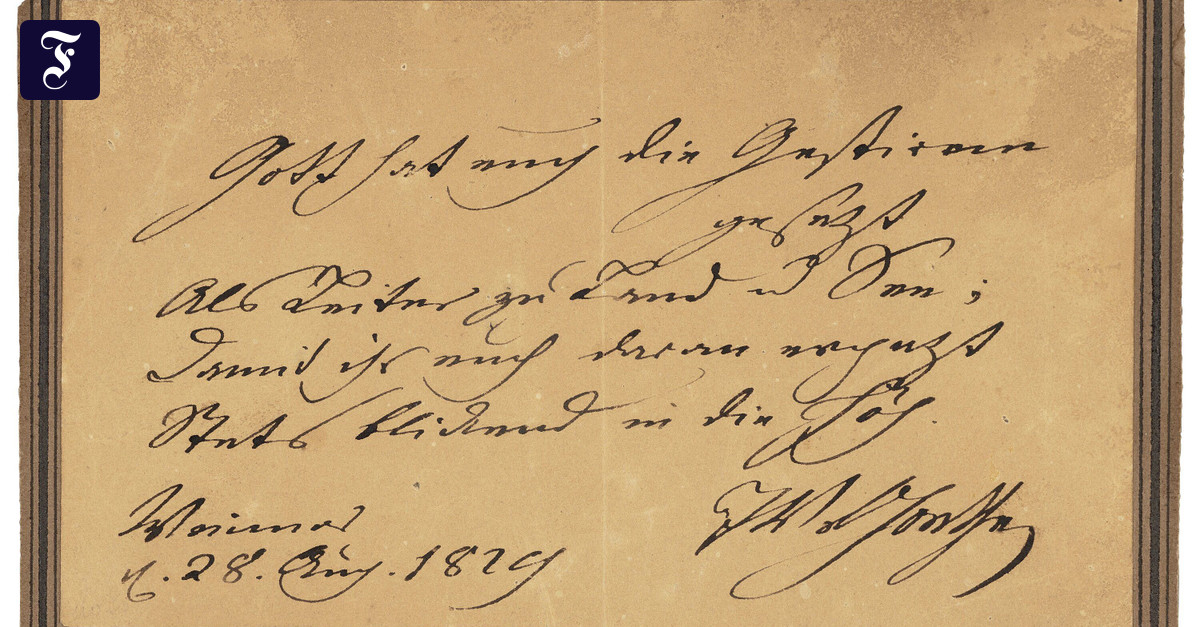 F
Gott hat euch die Gestirne
gesetzt
Als Leiter zu Land u See;
Damit ihr euch daran ergetzt
Stets blickend in die Höh.
Weimar
d. 28. Aug. 1829
JWvGoethe